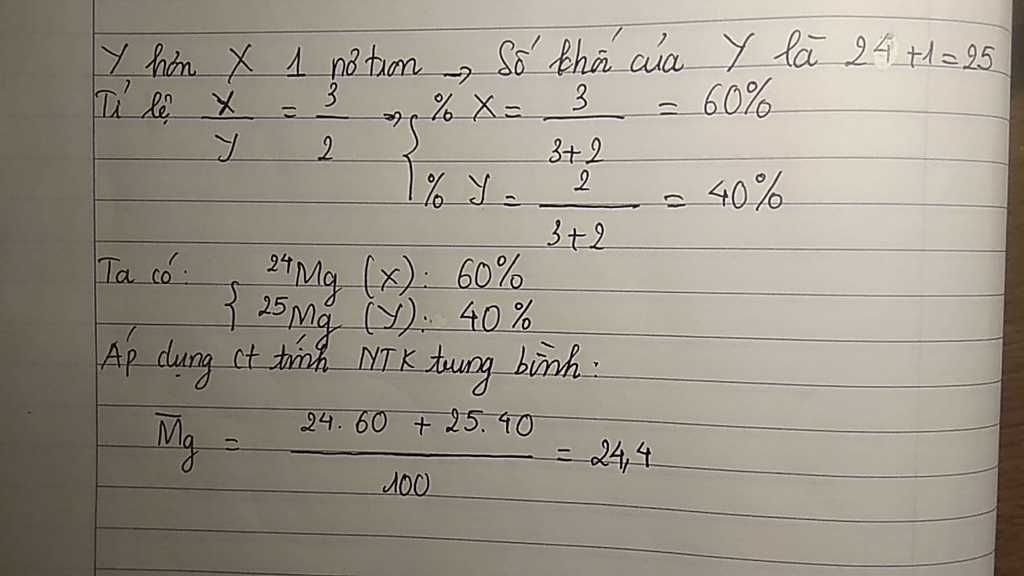 Y hơn X 1 nơtron → Số khối của Y là 24+1=25
Tỉ lệ X/Y = 3/2 => { % X = 3/(3+2) = 60%
% Y = 2/(3+2) = 40%
Ta có: { ²⁴Mg (X): 60%
²⁵Mg (Y): 40%
Áp dụng ct tính NTK trung bình:
M̅g = (24.60 + 25.40)/100 = 24,4